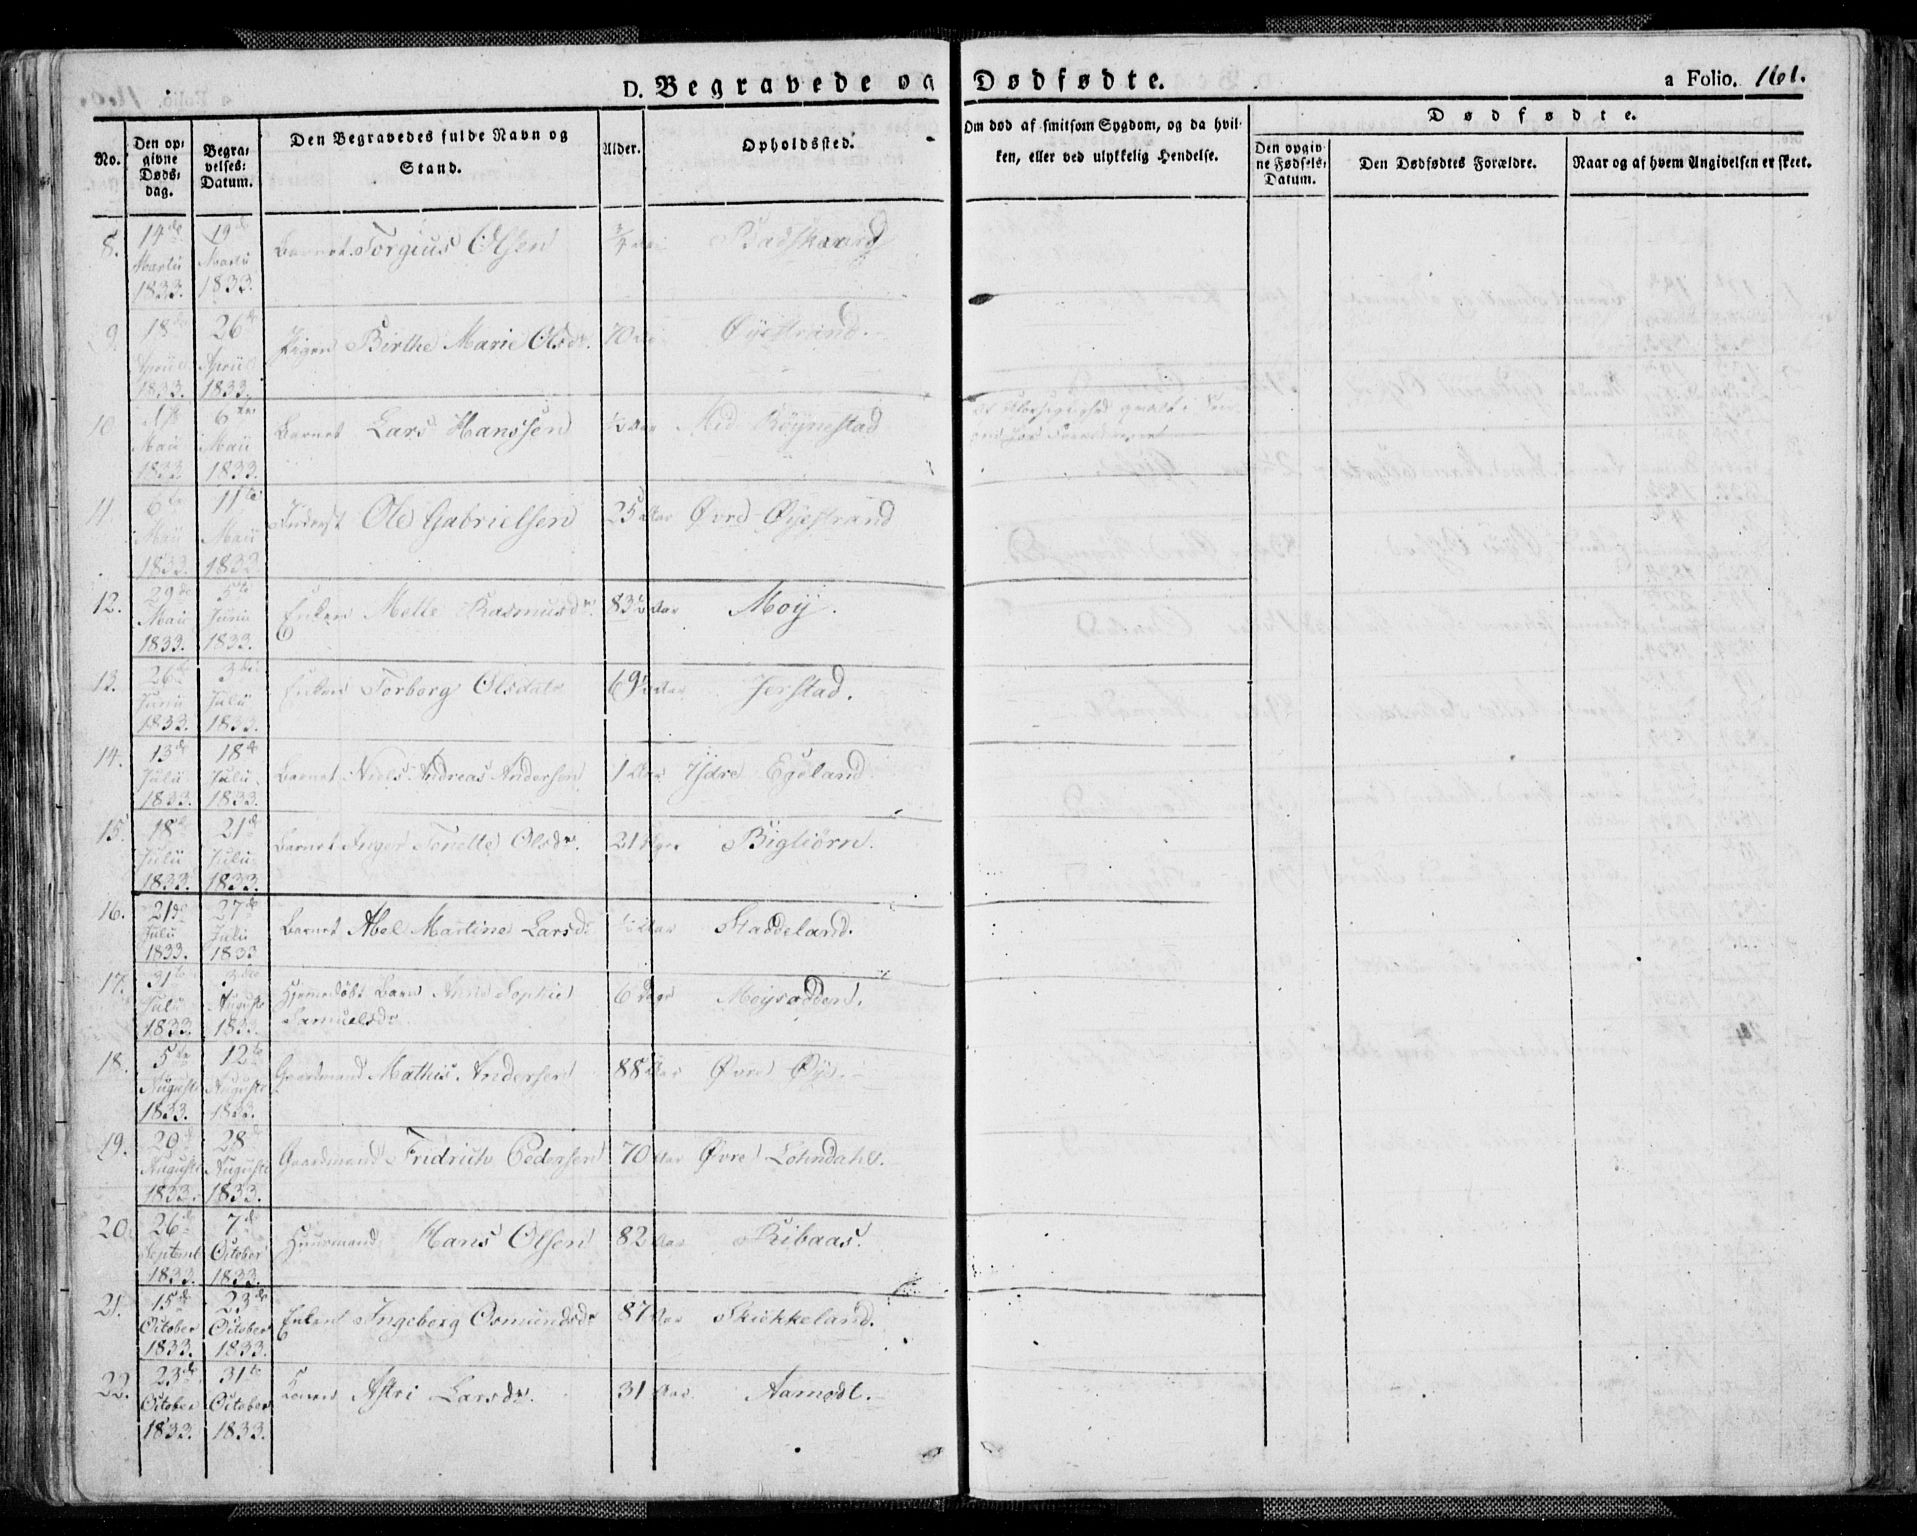 D. Begravede og Dødfødte.
a Folio. 161.
No.
Den opgivne Døds-dag.
Begravelses-Datum.
Den Begravedes fulde Navn og Stand.
Alder.
Opholdssted.
Om død af smitsom Sygdom, og da hvilken, eller ved ulykkelig Hendelse.
Dødfødte.
Den opgivne Fødsels-Datum.
Den Dødfødtes Forældre.
Naar og af hvem Angivelsen er skeet.
8. 14de Martii 1833. 19de Martii 1833. Barnet Torgius Olsen
9. 18de Aprili 1833. 26de Aprili 1833. Pigen Birthe Marie Olsdr. 70 Aar Øyestrand.
10 Maii 1833 6te Maii 1833. Barnet Lars Hanssen Mid Røynestad
11. 6te Maii 1833 11te Maii 1833 Inderst Ole Gabrielsen 25 Aar Øvre Øyestrand
12. 29de Maii 1833. 5te Junii 1833. Enken Mette Rasmusdr. 83½ Aar Moy.
13. 26de Junii 1833. 3die Julii 1833. Enken Torborg Olsdatr 69½ Aar Jerstad.
14. 13de Julii 1833. 18de Julii 1833. Barnet Niels Andreas Andersen 1 Aar Ydre Egeland
15. 18de Julii 1833. 21de Julii 1833. Barnet Inger Tonette Olsdr. 21 Uger Bigliörn.
16. 21de Julii 1833. 27de Julii 1833 Barnet Abel Martine Larsdr Staddeland.
17. 31te Julii 1833. 3die Augusti 1833. Hjemmedøbt Barn Anne Sophie Samuelsdr 6 Dage Moysodden.
18. 5te Augusti 1833. 12te Augusti 1833. Gaardmand Mathis Andersen 88 Aar Øvre Øye.
19. 20de Augusti 1833. 28de Augusti 1833. Gaardmand Fridrich Pedersen 70 Aar Øvre Lohndahl.
20. 26de Septembr 1833. 7de October 1833. Huusmand Hans Olsen 82 Aar Ribaas.
21. 15de October 1833. 23de October 1833. Enken Ingeborg Osmundsdr 87 Aar Skiekkeland.
22. 23de October 1833. 31te October 1833. Konen Astri Larsdr. 31 Aar Aamodt.